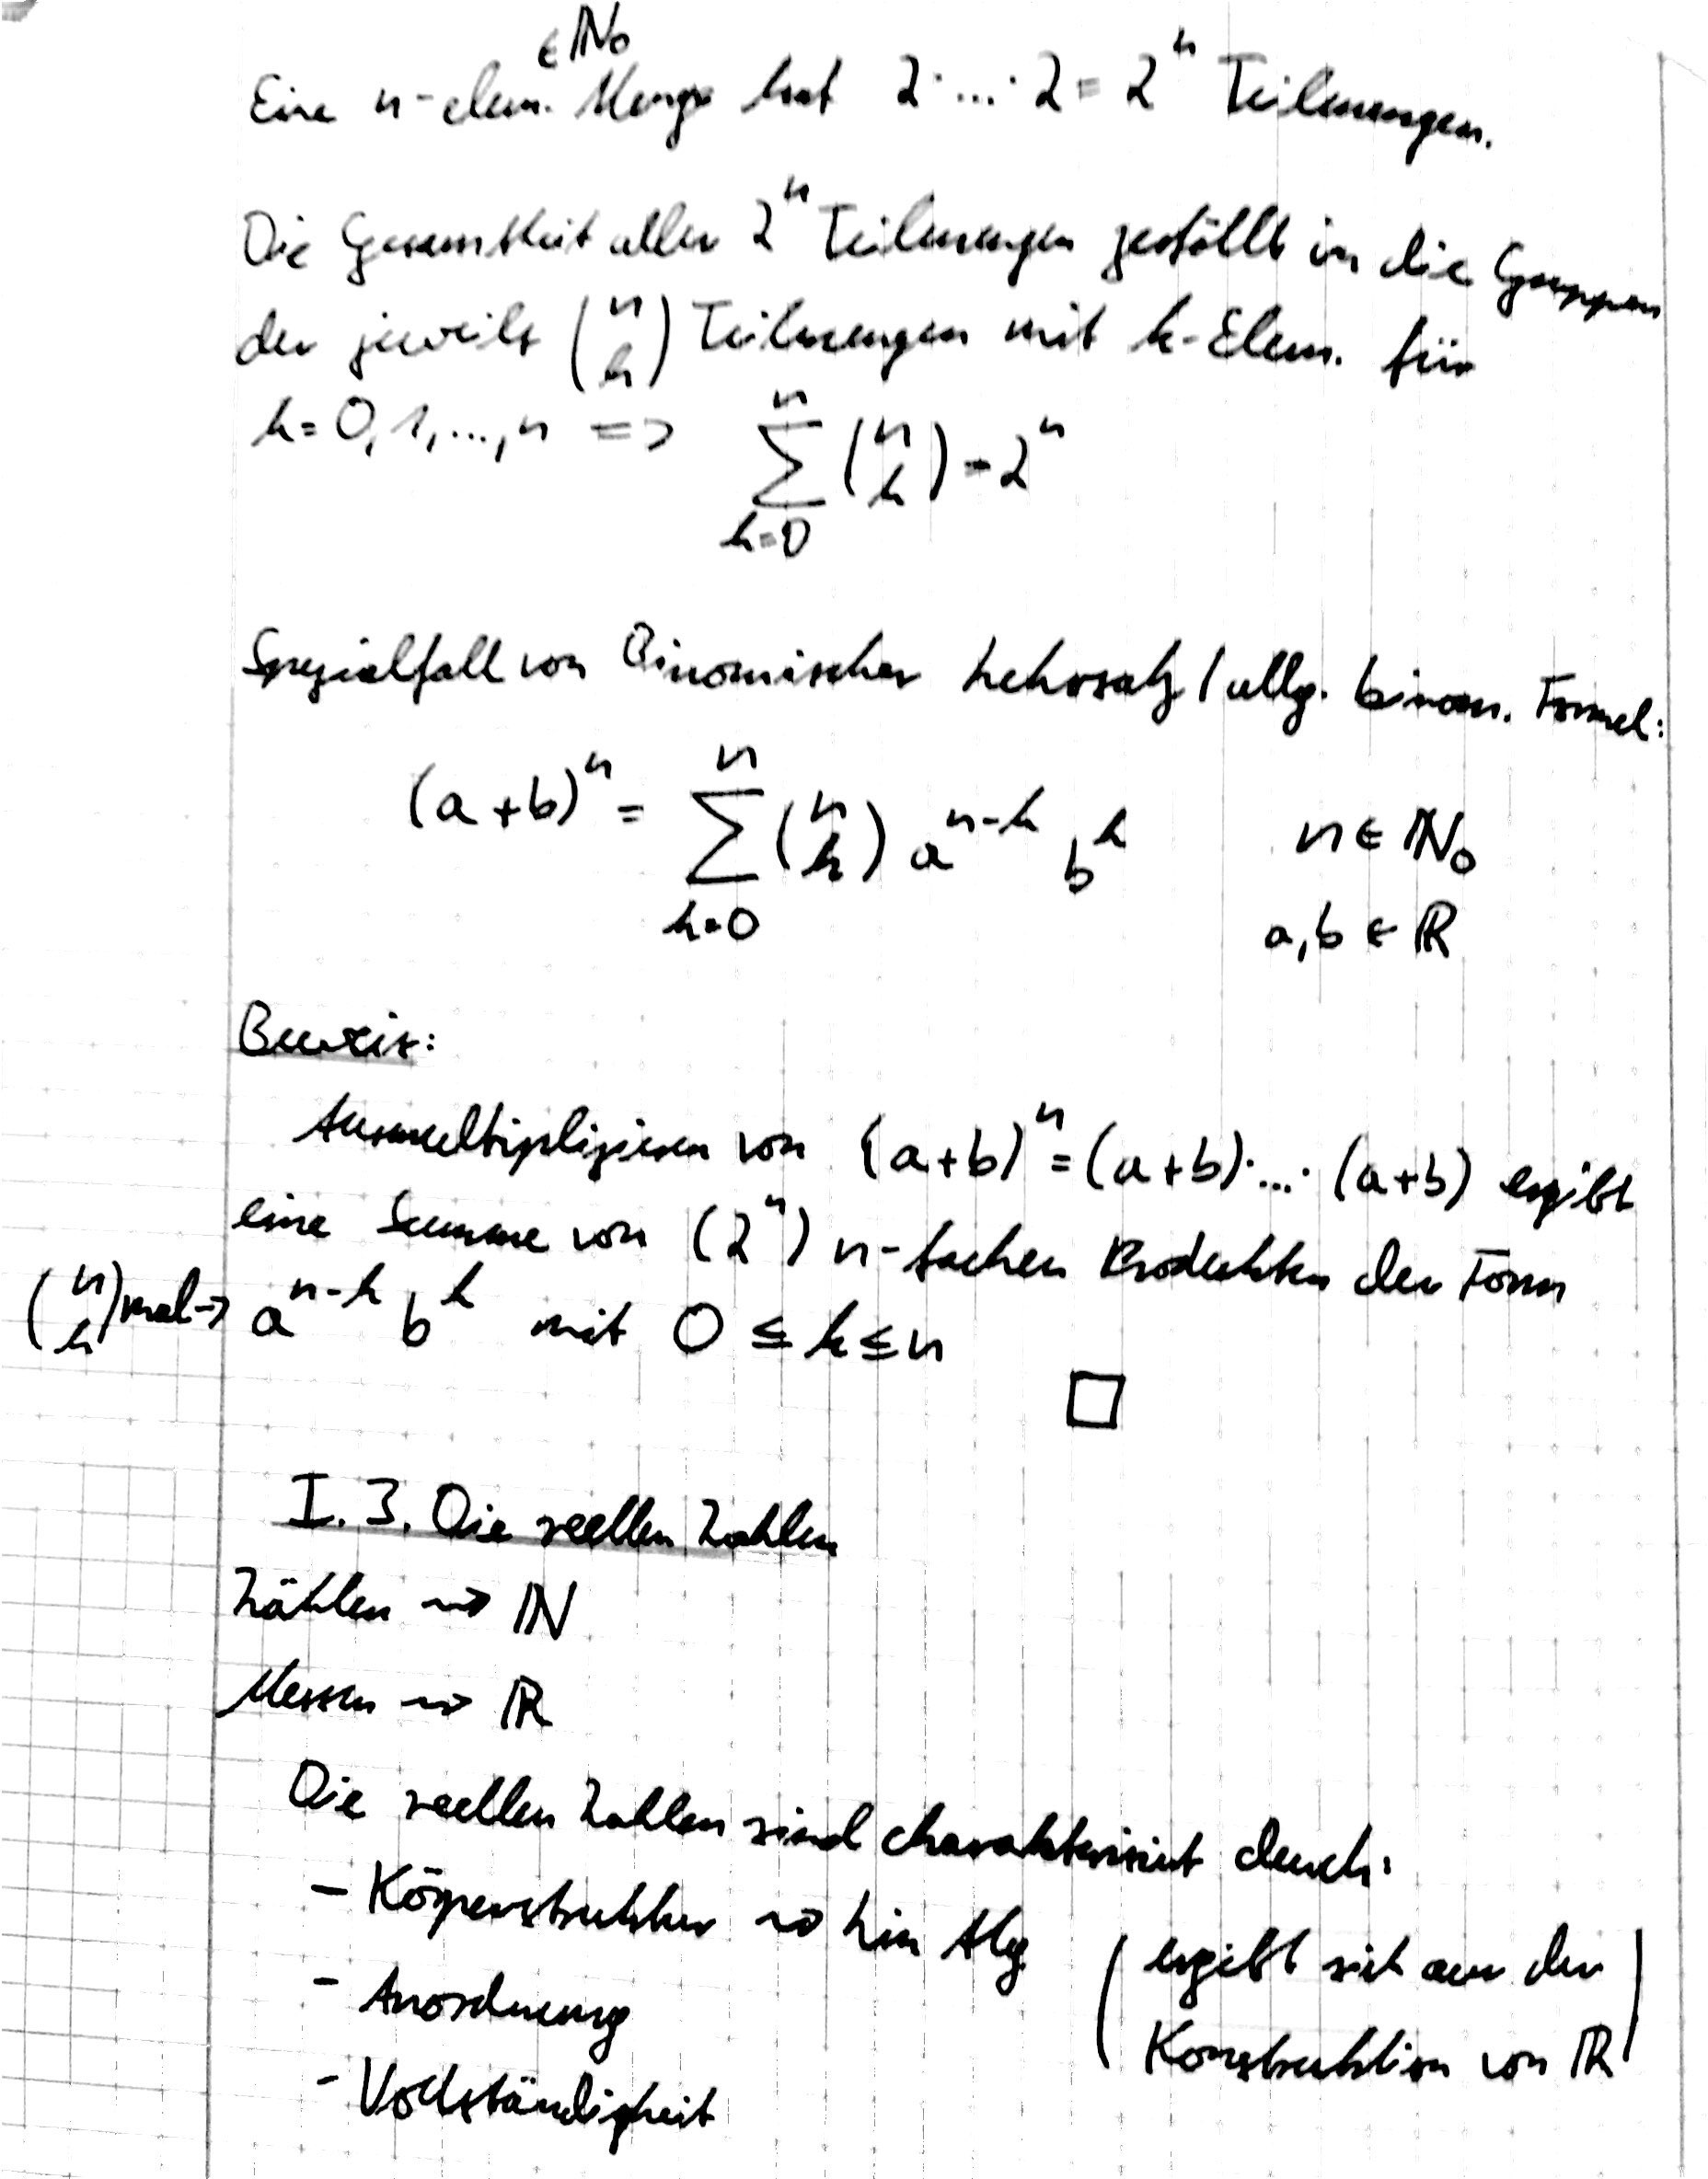 ∈ ℕ₀
Eine n-elem. Menge hat 2·...·2 = 2ⁿ Teilmengen.
Die Gesamtheit aller 2ⁿ Teilmengen zerfällt in die Gruppen
der jeweils (n k) Teilmengen mit k-Elem. für
k=0,1,...,n => ∑_{k=0}^{n} (n k) = 2ⁿ
Spezialfall von Binomischer Lehrsatz / allg. binom. Formel:
(a+b)ⁿ = ∑_{k=0}^{n} (n k) a^{n-k} b^k n ∈ ℕ₀
a,b ∈ ℝ
Beweis:
Ausmultiplizieren von (a+b)ⁿ = (a+b)·...·(a+b) ergibt
eine Summe von (2ⁿ) n-fachen Produkten der Form
(n k) mal → a^{n-k} b^k mit 0 ≤ k ≤ n
□
I.3. Die reellen Zahlen
Zählen ⇝ ℕ
Messen ⇝ ℝ
Die reellen Zahlen sind charakterisiert durch:
- Körperstruktur ⇝ Lin Alg
- Anordnung
- Vollständigkeit
(ergibt sich aus der
Konstruktion von ℝ)